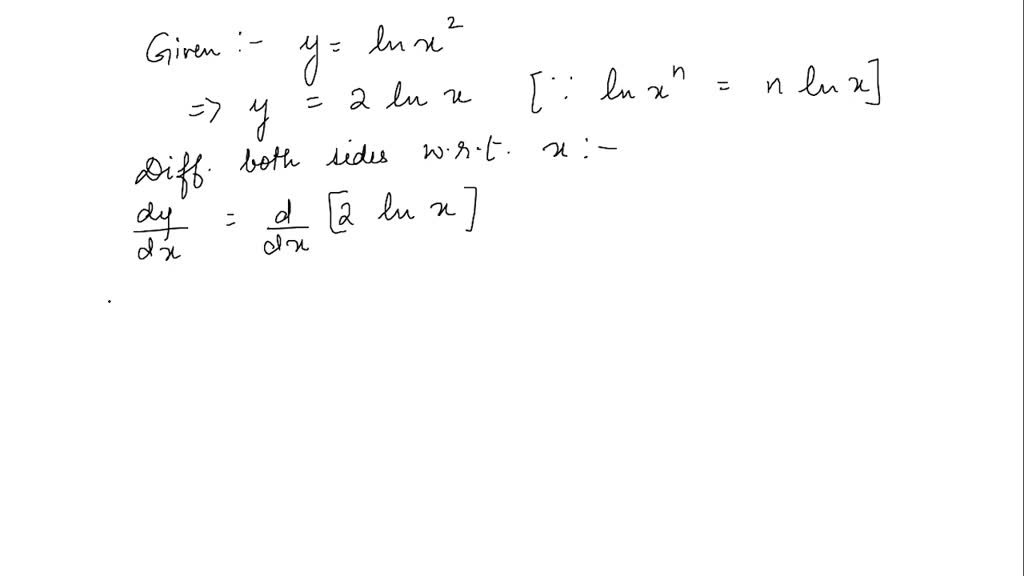 Given :- y = ln x²
=> y = 2 ln x [∵ ln xⁿ = n ln x]
Diff. both sides w.r.t. x :-
dy/dx = d/dx [2 ln x]